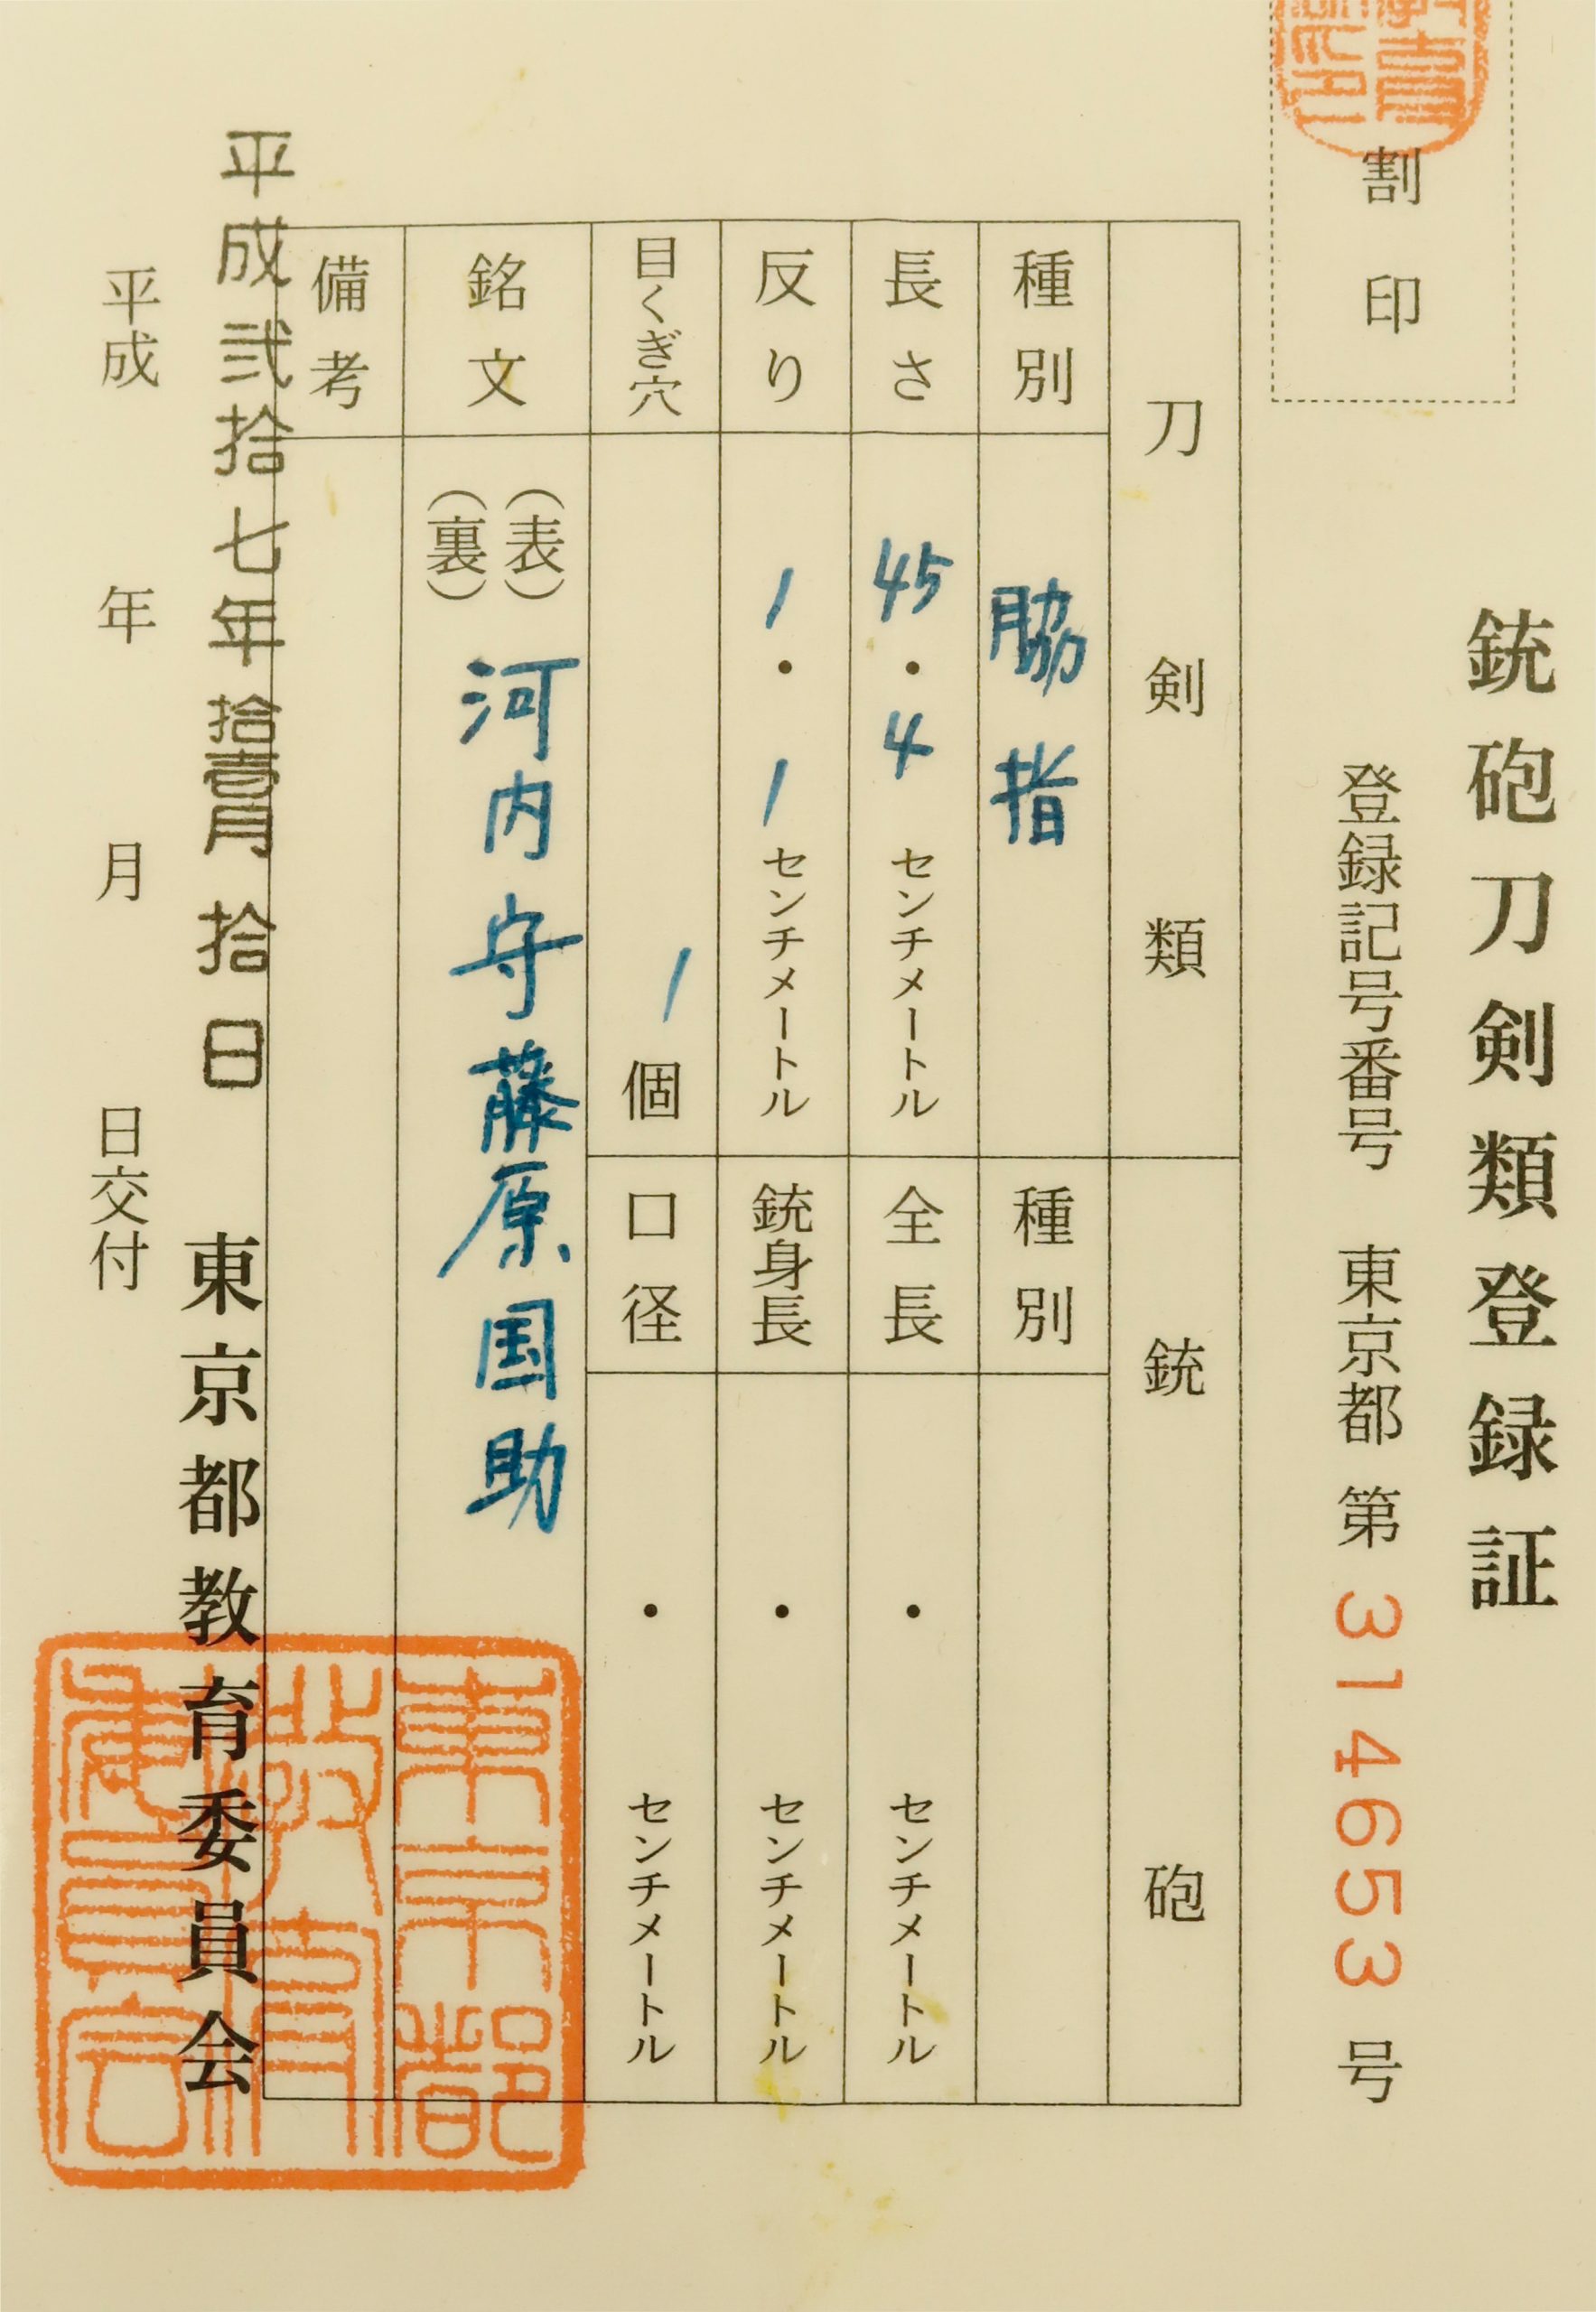 割印
銃砲刀剣類登録証
登録記号番号 東京都 第 314653 号
刀剣類
種別 脇指
長さ 45・4 センチメートル
反り 1・1 センチメートル
目くぎ穴 1個
銃砲
種別
全長 ・ センチメートル
銃身長 ・ センチメートル
口径 ・ センチメートル
銘文
(表) 河内守藤原国助
(裏)
備考
平成弐拾七年拾壹月拾日
東京都教育委員会
東京都教育委員会
平成 年 月 日交付